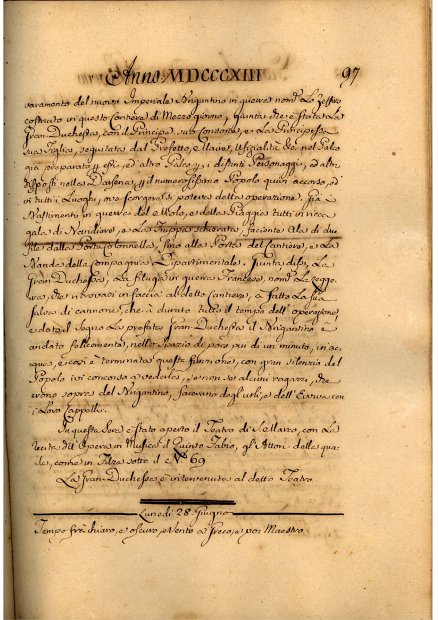 Anno MDCCCXIII 97
varamento del nuovo Imperiale Brigantino in guerra nom.º Lo Zeffiro
costruito in questo Cantiere di Mezzogiorno, Giunta che è stata La
Gran Duchessa, con il Principe suo Consorte, e La Principessa
sua Figlia, seguitata dal Prefetto, e Maire, Ufizialità &c nel Palco
già preparato essi, ed altro Palco i distinti Personaggi, ed altri
disposti nella Darsena, il numerosissimo Popolo quivi accorso, ed
in tutti i Luoghi, ove scorger si poteva detta operazione. Già i
Bastimenti in guerra del Molo, e della Piaggia tutti in ricca
gala di Bandiere, e La Truppa schierata, faciente Ala di du-
file dalla Porta Colonnella, fino alla Porta del Cantiere, e La
Banda della Compagnia Dipartimentale. Giunta dissi, La
Gran Duchessa, La Filuga in guerra Francese, nom.º La Legge-
ra, che ritrovavasi in faccia al detto Cantiere, à fatto La sua
salva di cannone, che à durato tutto il tempo dell'operazione,
e dato il segno La prefata Gran Duchessa il Brigantino è
andato felicemente, nello spazio di poco più di un minuto, in ac-
qua, e così è terminata questa funzione, con gran silenzio del
Popolo ivi concorso a vederla, se non se alcuni ragazzi, che
erono sopra del Brigantino, facevano degli urli, e dell' Evviva con
i Loro Cappelli.
In questa Sera è stato aperto il Teatro di S. Marco, con La
recita dell' Opera in Musica il Quinto Fabio, gl' Attori della qua-
le, come in Filza sotto il Nº 69
La Gran Duchessa è intervenuta al detto Teatro.
Lunedì 28 Giugno
Tempo frà chiaro, e oscuro, e Vento a Greco, e poi Maestro